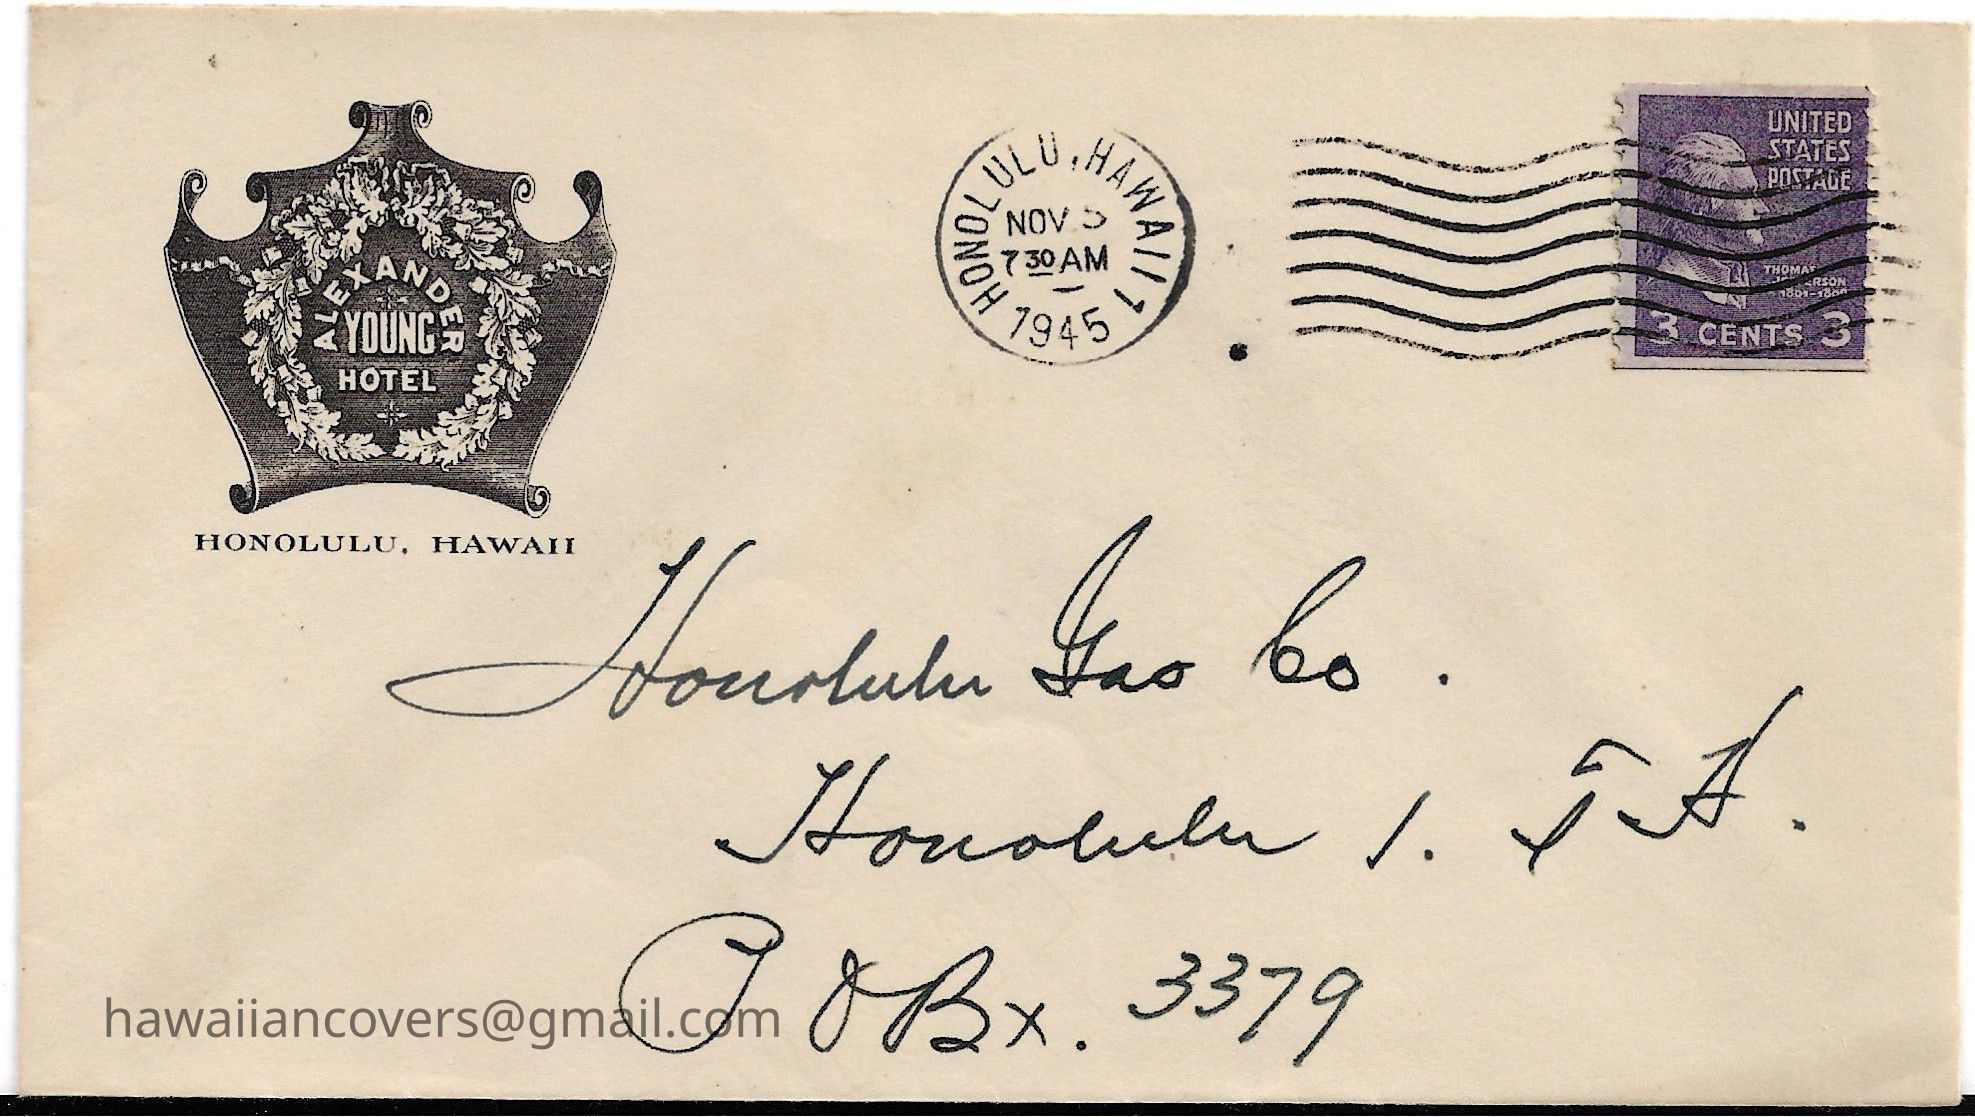 ALEXANDER
YOUNG
HOTEL
HONOLULU, HAWAII
HONOLULU, HAWAII 1
NOV 5
7 30 AM
1945
UNITED
STATES
POSTAGE
THOMAS
1801-1809
3 CENTS 3
Honolulu Gas Co.
Honolulu 1. T H.
P O Bx. 3379
hawaiiancovers@gmail.com